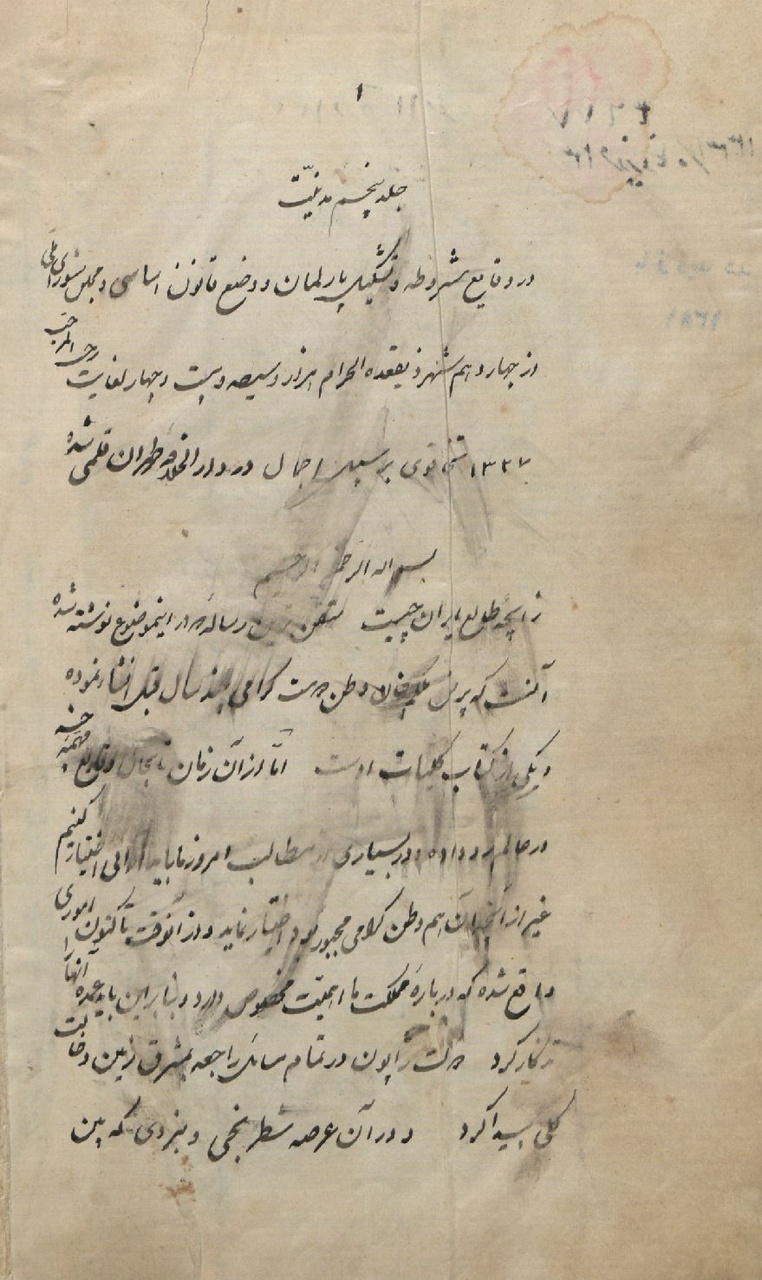 ۱
جلد پنجم مدنیّت
در وقایع مشروطه و تشکیل پارلمان و وضع قانون اساسی و مجلس شورای ملی
از چهاردهم شهر ذیقعده الحرام هزار و سیصد و بیست و چهار لغایت رجب المرجب
۱۳۲۷ بر سبیل اجمال در دارالخلافه طهران قلمی شده
بسم اله الرحمن الرحیم
زایچه طالع ایران چیست متقن ترین رساله که در اینموضوع نوشته شده
آنست که پرنس ملکم خان وطن دوست گرامی چند سال قبل انشاء نموده
و یکی از کتاب کلیات اوست امّا از آن زمان تا بحال وقایع مهمّه
در عالم رو داده و در بسیاری از مطالب امروز ما باید اختیار کنیم
غیر از آنچه آن هم وطن گرامی مجبور بود اختیار نماید و از آنوقت تاکنون اموری
واقع شده که درباره مملکت ما اهمیّت مخصوص دارد و بنابراین باید عمده آنها را
تذکار کرد دولت ژاپون در تمام مسائل راجعه بمشرق زمین
کلی پیدا کرد و در آن عرصه شطرنجی و نبردی که بین